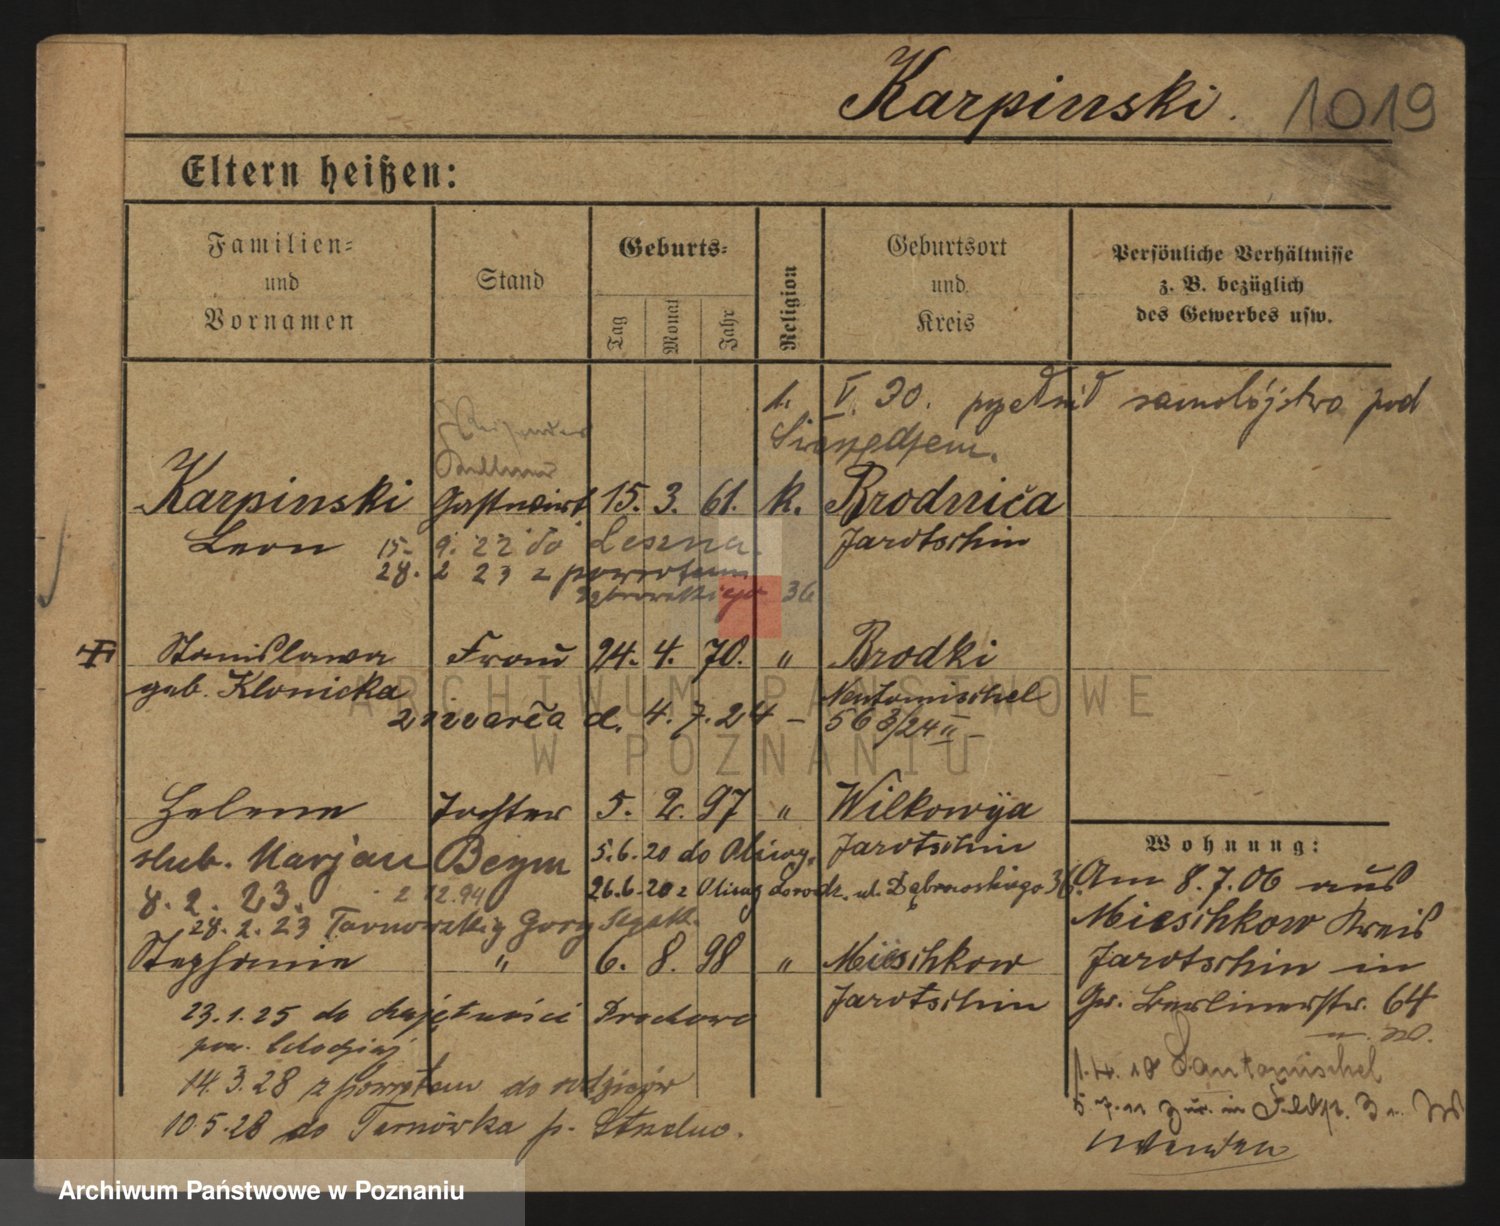 Karpinski. 1019
Eltern heißen:
Familien-
und
Vornamen
Stand
Geburts-
Tag
Monat
Jahr
Religion
Geburtsort
und
Kreis
Persönliche Verhältnisse
z. B. bezüglich
des Gewerbes usw.
1. V. 30. popełnił samobójstwo pod
Karpinski Gastwirt 15. 3. 61. k. Brodnica
Leon 15. 9. 22 do Leszna. Jarotschin
28. 2 23 z powrotem
36
Stanislawa Frau 24. 4. 70. " Brodki
geb. Klonicka Neutomischel
zmarła d. 4. 7. 24 – 563/24 II –
Helene Tochter 5. 2. 97 " Wilkowyja
ślub. Marjan Beym 5.6.20 do Oliwy. Jarotschin
8. 2. 23. 2 12.94 26.6.20 z Oliwy ul. Dąbrowskiego 36.
28. 2. 23 Tarnowskie Gory
Stephanie " 6. 8. 98 " Mieschkow
Jarotschin
23.1.25 do majętności Drochowo
14. 3. 28 z powrotem do rodziców
10.5.28 do Tarnówka p.
Wohnung:
Am 8.7.06 aus
Mieschkow Kreis
Jarotschin in
Gr. Berlinerstr. 64
1. 4. 18 Santomischel
wenden
ARCHIWUM PAŃSTWOWE
W POZNANIU
Archiwum Państwowe w Poznaniu